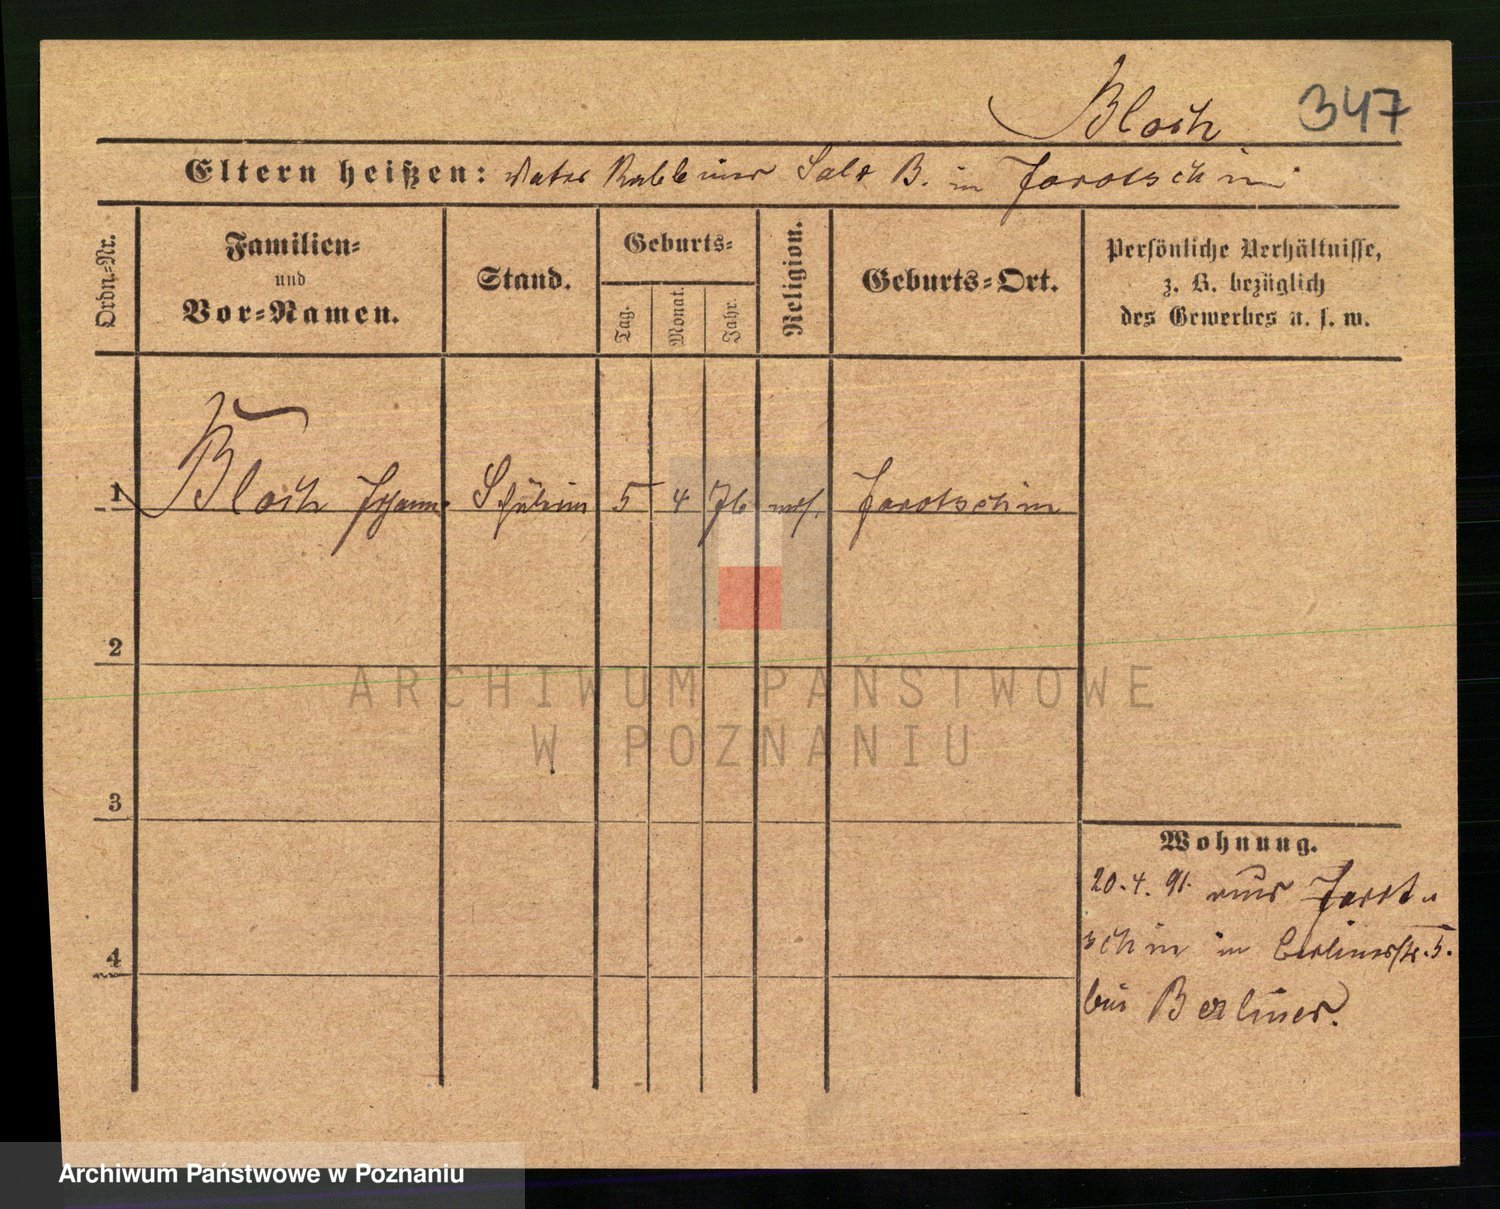 Bloch 347
Eltern heißen: Vater Rabbiner Salo B. in Jarotschin
Ordn.-Nr.
Familien-
und
Vor-Namen.
Stand.
Geburts-
Tag.
Monat.
Jahr.
Religion.
Geburts-Ort.
Persönliche Verhältnisse,
z. B. bezüglich
des Gewerbes u. s. w.
1 Bloch Schülerin 5 4 76 mos. Jarotschin
2
3
4
Wohnung.
20.4.91. aus Jarot-
schin in Berlinerstr. 5.
bei Berliner.
ARCHIWUM PAŃSTWOWE
W POZNANIU
Archiwum Państwowe w Poznaniu